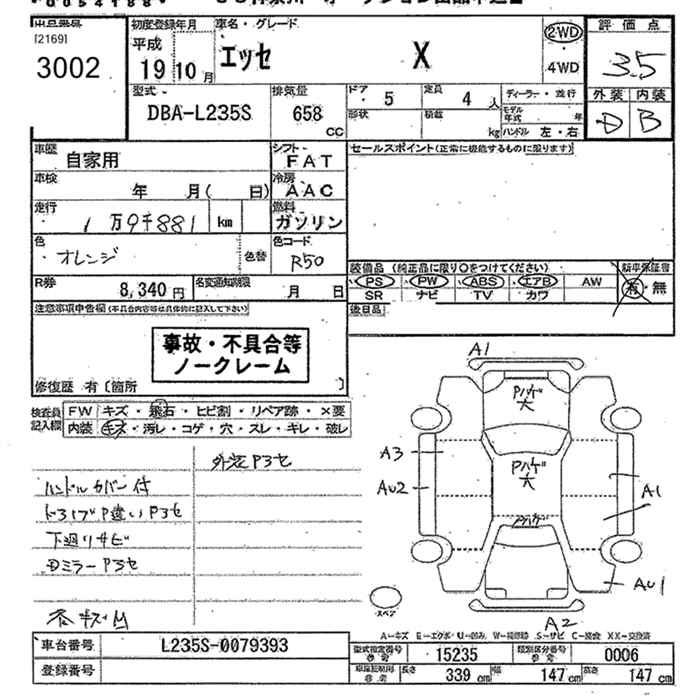 0054188
出品番号
[2169]
3002
初度登録年月
平成
19年10月
車名・グレード
エッセ X
2WD
4WD
評価点
3.5
外装 内装
D B
型式
DBA-L235S
排気量
658
CC
ドア
5
定員
4人
形状
積載
kg
ディーラー・並行
モデル年式 年
ハンドル 左・右
車歴
自家用
シフト
FAT
車検
年 月( 日)
冷房
AAC
走行
1万9千881 km
燃料
ガソリン
色
オレンジ
色替
色コード
R50
R券
8,340円
名変通知期限
月 日
セールスポイント(正常に機能するものに限ります)
装備品 (純正品に限り○をつけてください)
PS PW ABS エアB AW
SR ナビ TV カワ
新車保証書
有・無
後日品
注意事項申告欄(不具合内容等は具体的に記入して下さい)
事故・不具合等
ノークレーム
修復歴 有〔箇所 〕
検査員
記入欄
FW キズ・飛石・ヒビ割・リペア跡・×要
内装 キズ・汚レ・コゲ・穴・スレ・キレ・破レ
外装P3セ
ハンドルカバー付
下廻りサビ
DミラーP3セ
A1
Pハゲ
大
A3
AU2
Pハゲ
大
Pハゲ
A1
AU1
A2
スペア
A-キズ E-エクボ U-凹み W-補修跡 S-サビ C-腐蝕 XX-交換済
車台番号
L235S-0079393
登録番号
型式指定番号
参考
15235
類別区分番号
参考
0006
長さ 339cm
幅 147cm
高さ 147cm